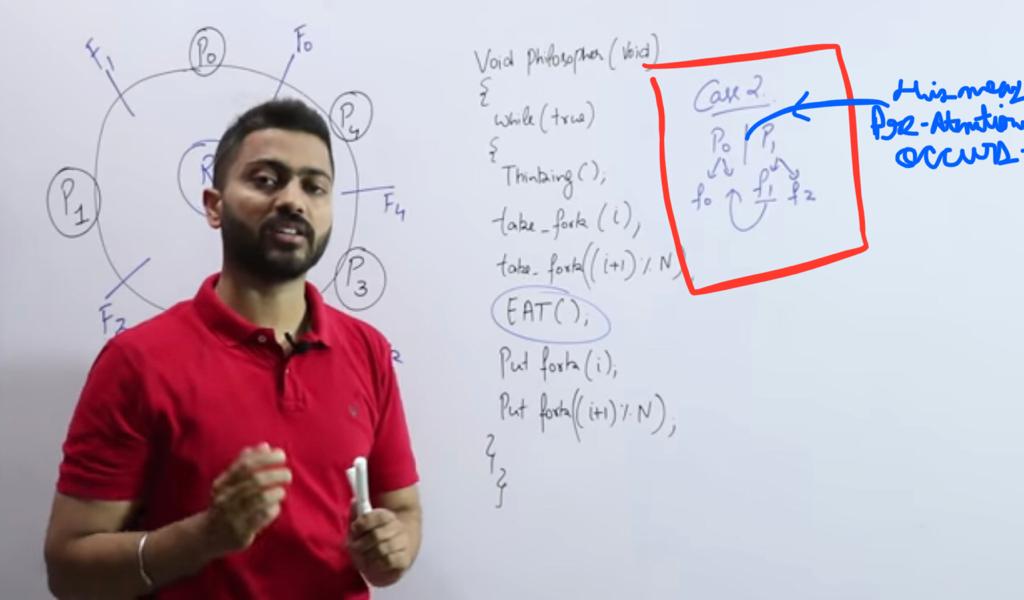 F1
P0
F0
P4
P1
R
F4
P3
F2
Void philosopher (void)
{
while (true)
{
Thinking();
take_fork (i);
take_fork((i+1) % N);
EAT();
Put fork (i);
Put fork((i+1) % N);
}
}
Case 2
P0 | P1
f0 f1 f2
this means
occurs